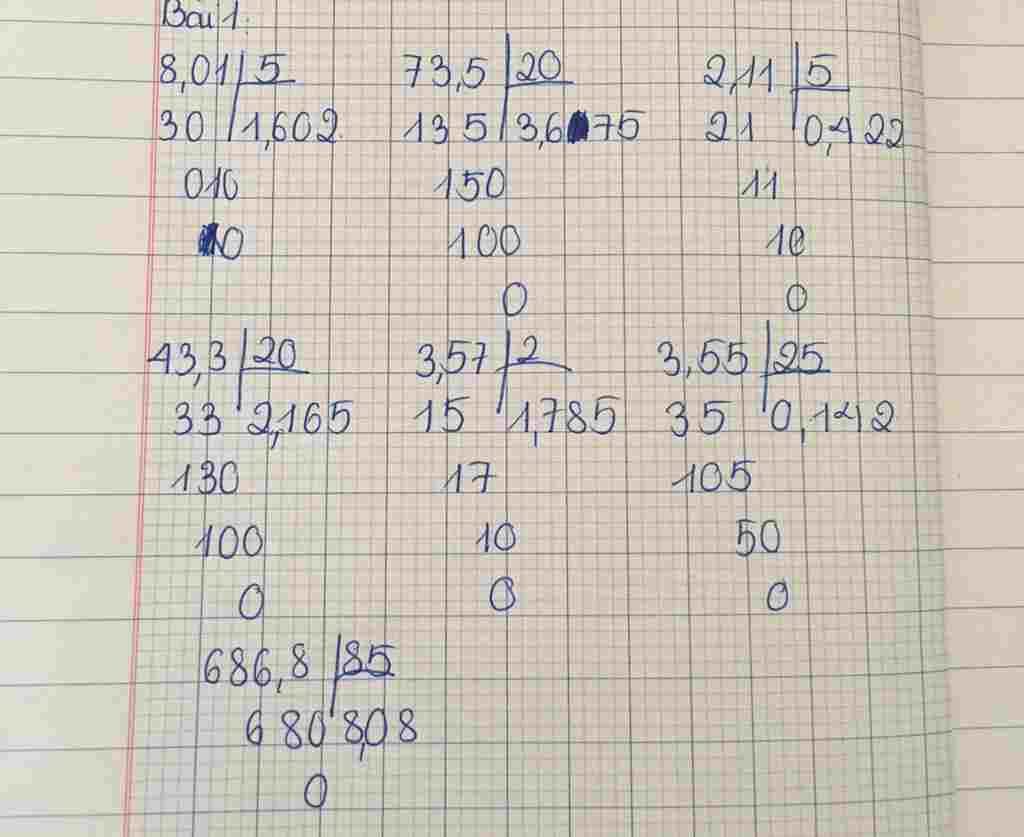 Bài 1:
8,01 5 73,5 20 2,11 5
30 1,602 135 3,675 21 0,422
010 150 11
0 100 10
0 0
43,3 20 3,57 2 3,55 25
33 2,165 15 1,785 35 0,142
130 17 105
100 10 50
0 0 0
686,8 85
680 8,08
0